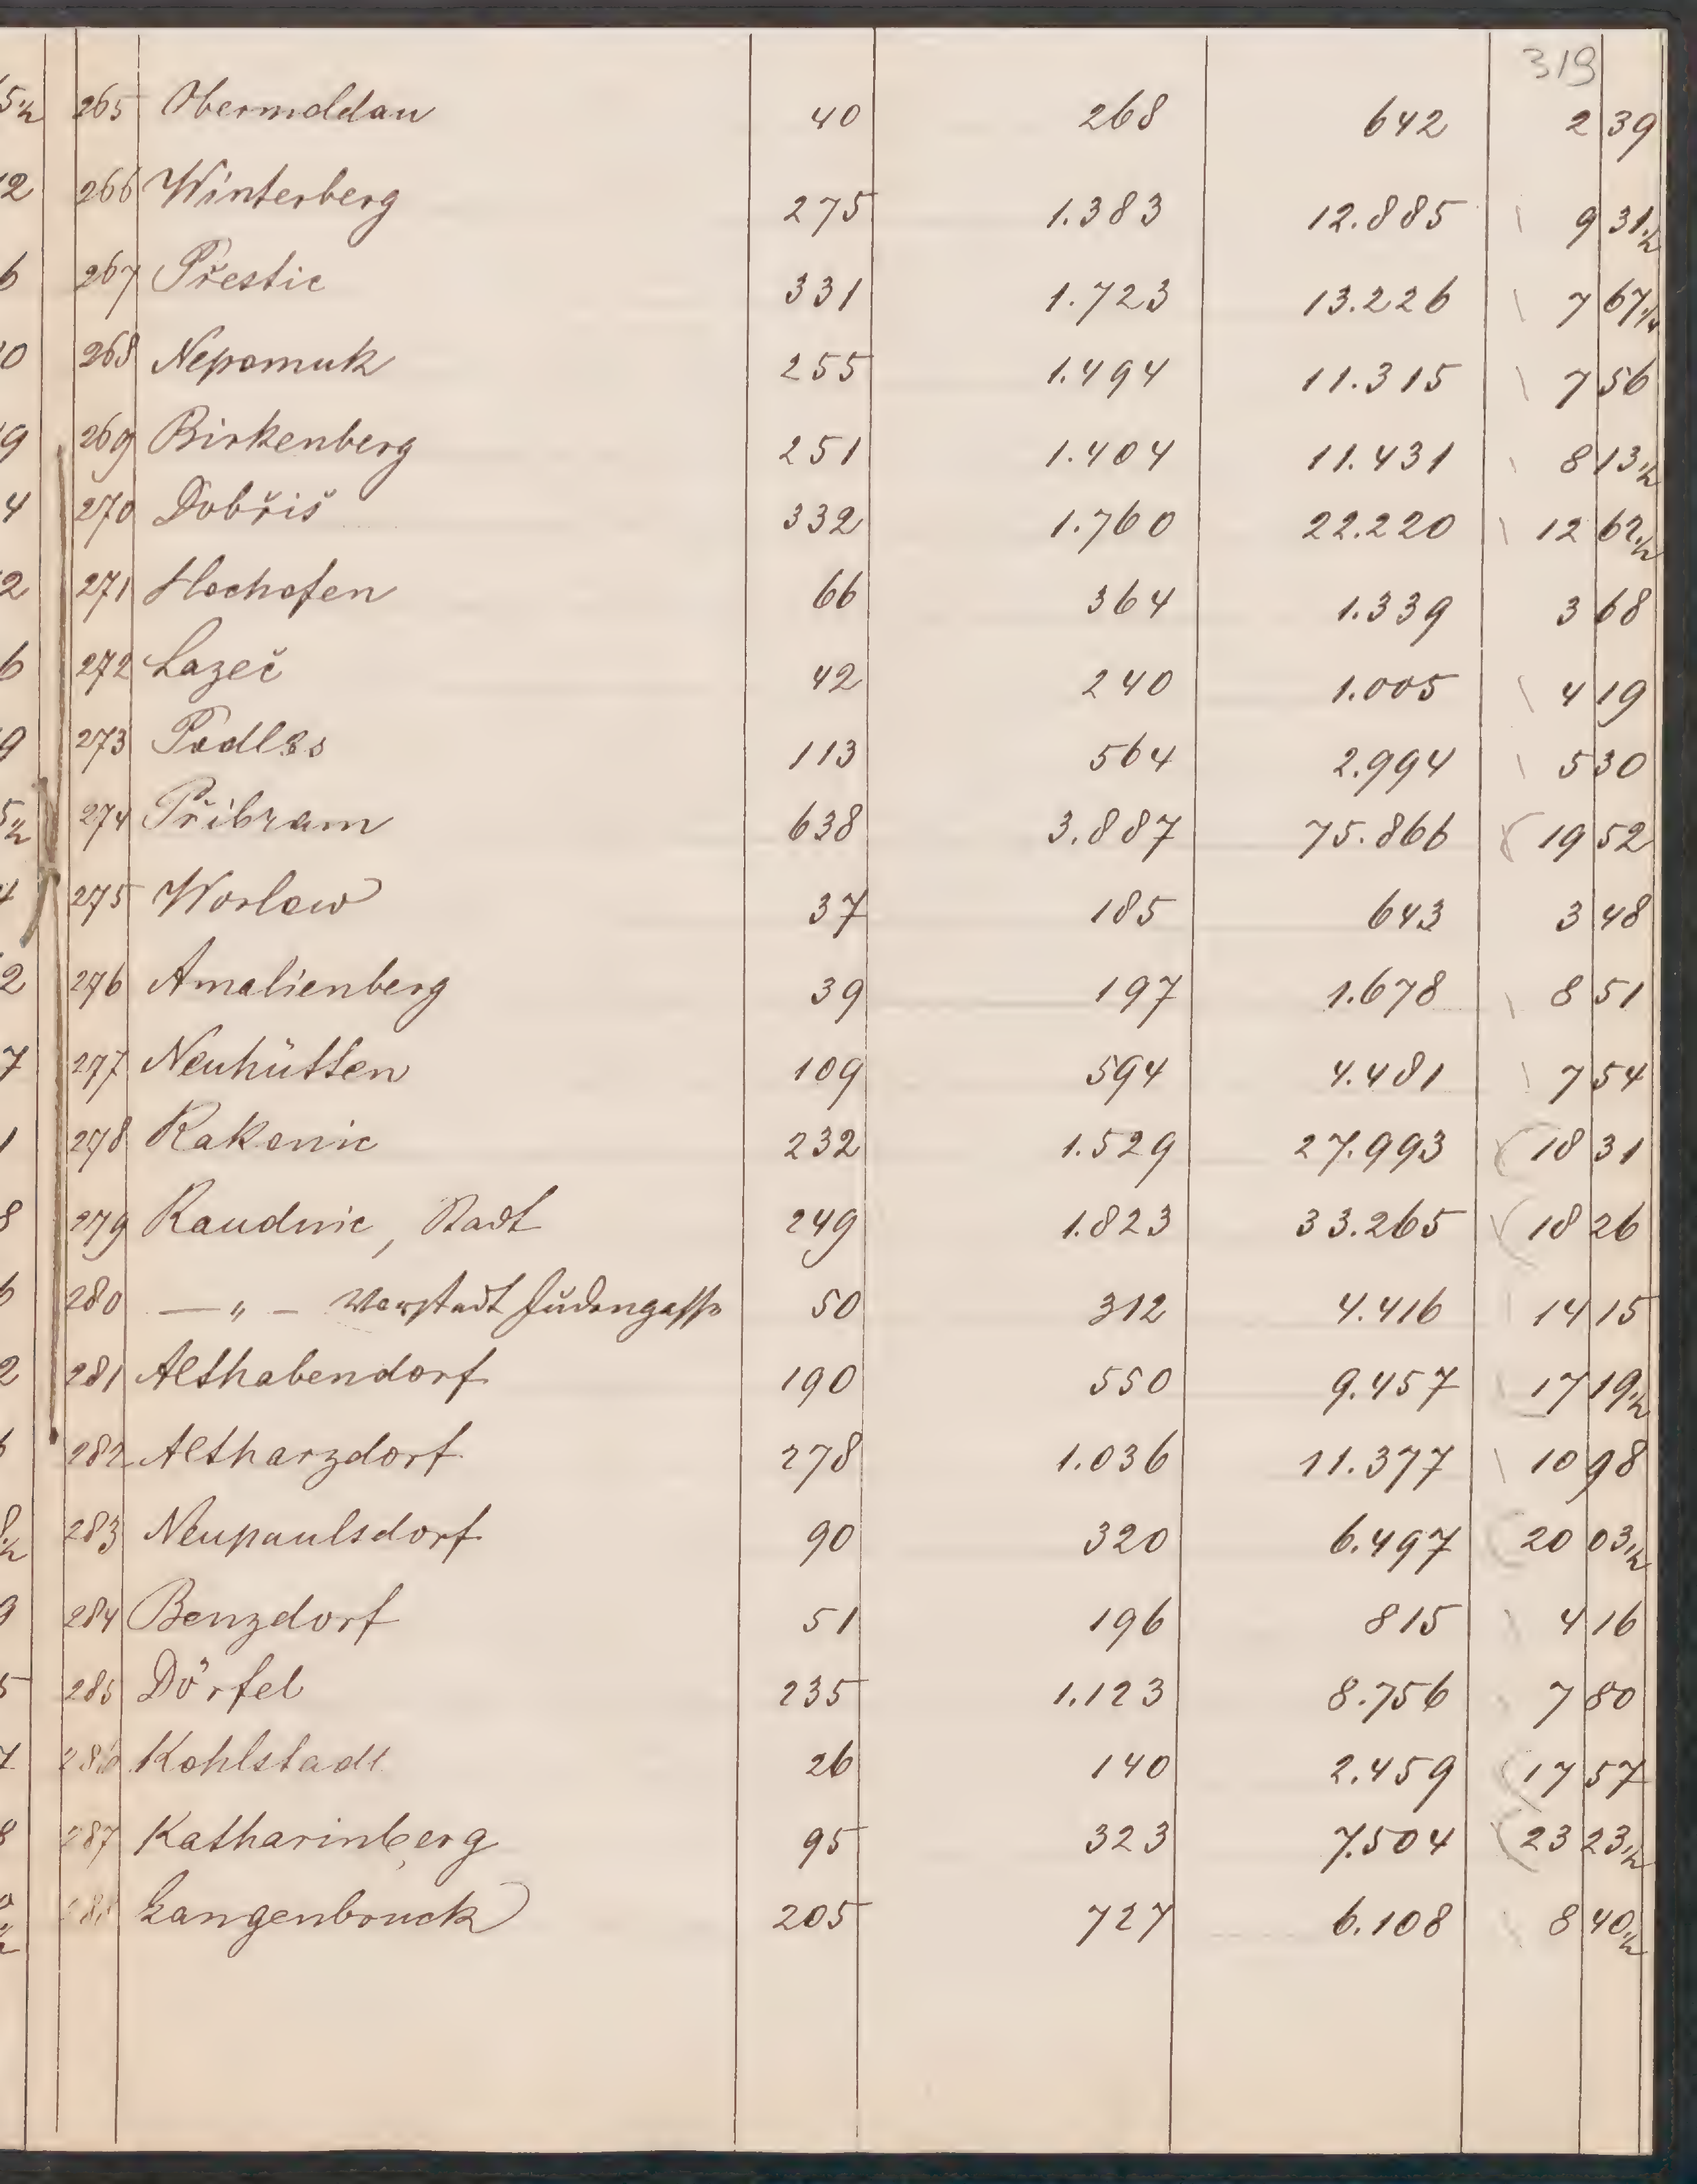 319
265 Obermoldau 40 268 642 2 39
266 Winterberg 275 1.383 12.885 9 31 1/2
267 Přestic 331 1.723 13.226 7 67 1/4
268 Nepomuk 255 1.494 11.315 7 56
269 Birkenberg 251 1.404 11.431 8 13 1/2
270 Dobřiš 332 1.760 22.220 12 62 1/2
271 Hochofen 66 364 1.339 3 68
272 Lazeč 42 240 1.005 4 19
273 Podles 113 564 2.994 5 30
274 Přibram 638 3.887 75.866 19 52
275 Worlow 37 185 643 3 48
276 Amalienberg 39 197 1.678 8 51
277 Neuhütten 109 594 4.481 7 54
278 Rakonic 232 1.529 27.993 18 31
279 Raudnic, Stadt 249 1.823 33.265 18 26
280 — „ — Vorstadt Judengasse 50 312 4.416 14 15
281 Althabendorf 190 550 9.457 17 19 1/2
282 Altharzdorf 278 1.036 11.377 10 98
283 Neupaulsdorf 90 320 6.497 20 03 1/2
284 Benzdorf 51 196 815 4 16
285 Dörfel 235 1.123 8.756 7 80
286 Kohlstadt 26 140 2.459 17 57
287 Katharinberg 95 323 7.504 23 23 1/2
288 Langenbruck 205 727 6.108 8 40 1/2